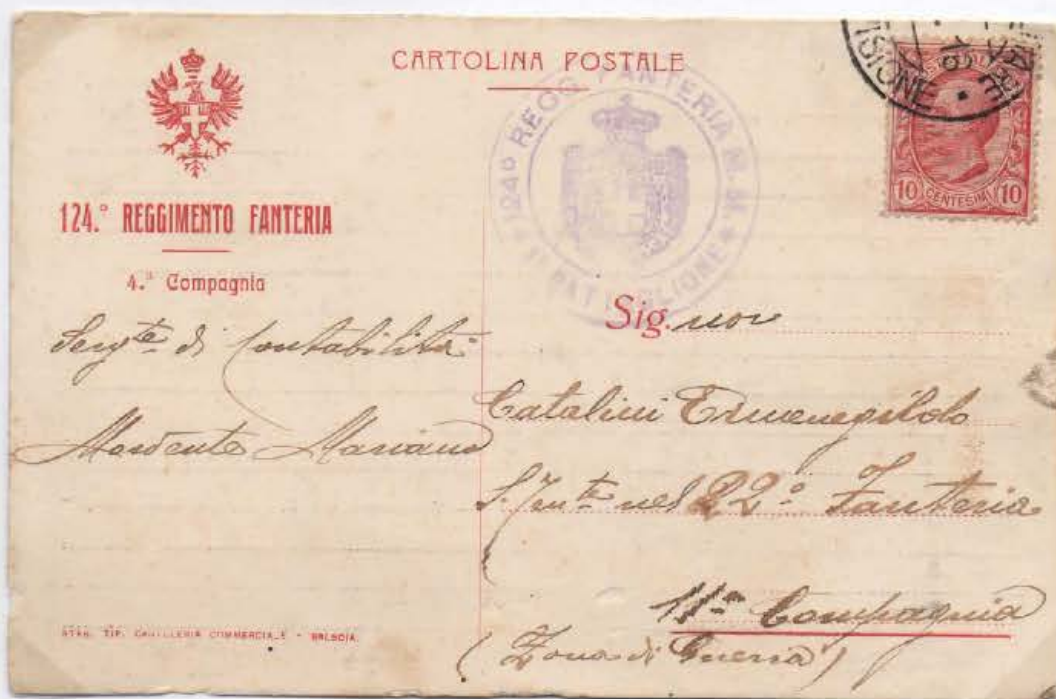 CARTOLINA POSTALE
124.º REGGIMENTO FANTERIA
4.ª Compagnia
Serg.te di Contabilità
Mordente Mariano
124º REGG. FANTERIA M. M.
BATTAGLIONE
ISIONE
10 CENTESIMI 10
Sig.nor
Catalini Ermenegildo
S. Ten.te nel 22º Fanteria
11ª Compagnia
(Zona di Guerra)
STAB. TIP. CARTOLERIA COMMERCIALE - BRESCIA